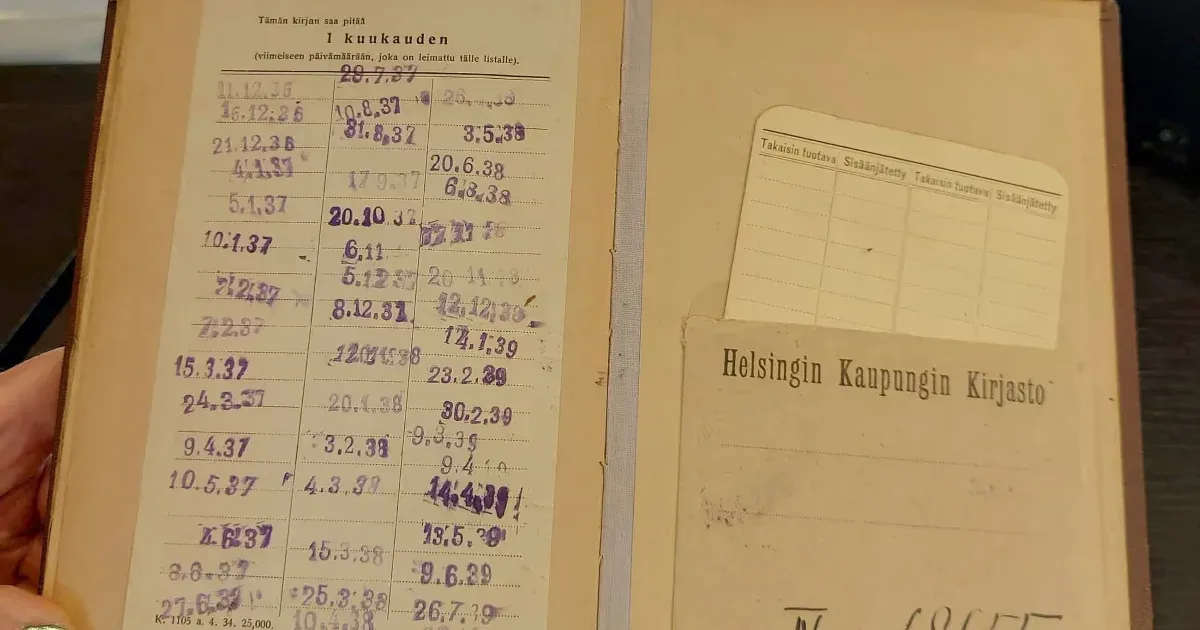 Tämän kirjan saa pitää
1 kuukauden
(viimeiseen päivämäärään, joka on leimattu tälle listalle).
11.12.36
16.12.36
21.12.36
4.1.37
5.1.37
10.1.37
7.2.37
7.2.37
15.3.37
24.3.37
9.4.37
10.5.37
4.6.37
8.6.37
27.6.37
K. 1105 a. 4. 34. 25,000.
29.7.37
10.8.37
31.8.37
17 9.37
20.10.37
6.11
5.12.37
8.12.37
20.1.38
3.2.38
4.3.38
15.3.38
25.3.38
10.4.38
3.5.38
20.6.38
6.8.38
12.12.38
14.1.39
23.2.39
30.2.39
9.3.39
9.4
14.4.39
13.5.39
9.6.39
26.7.39
Takaisin tuotava Sisäänjätetty Takaisin tuotava Sisäänjätetty
Helsingin Kaupungin Kirjasto
IV